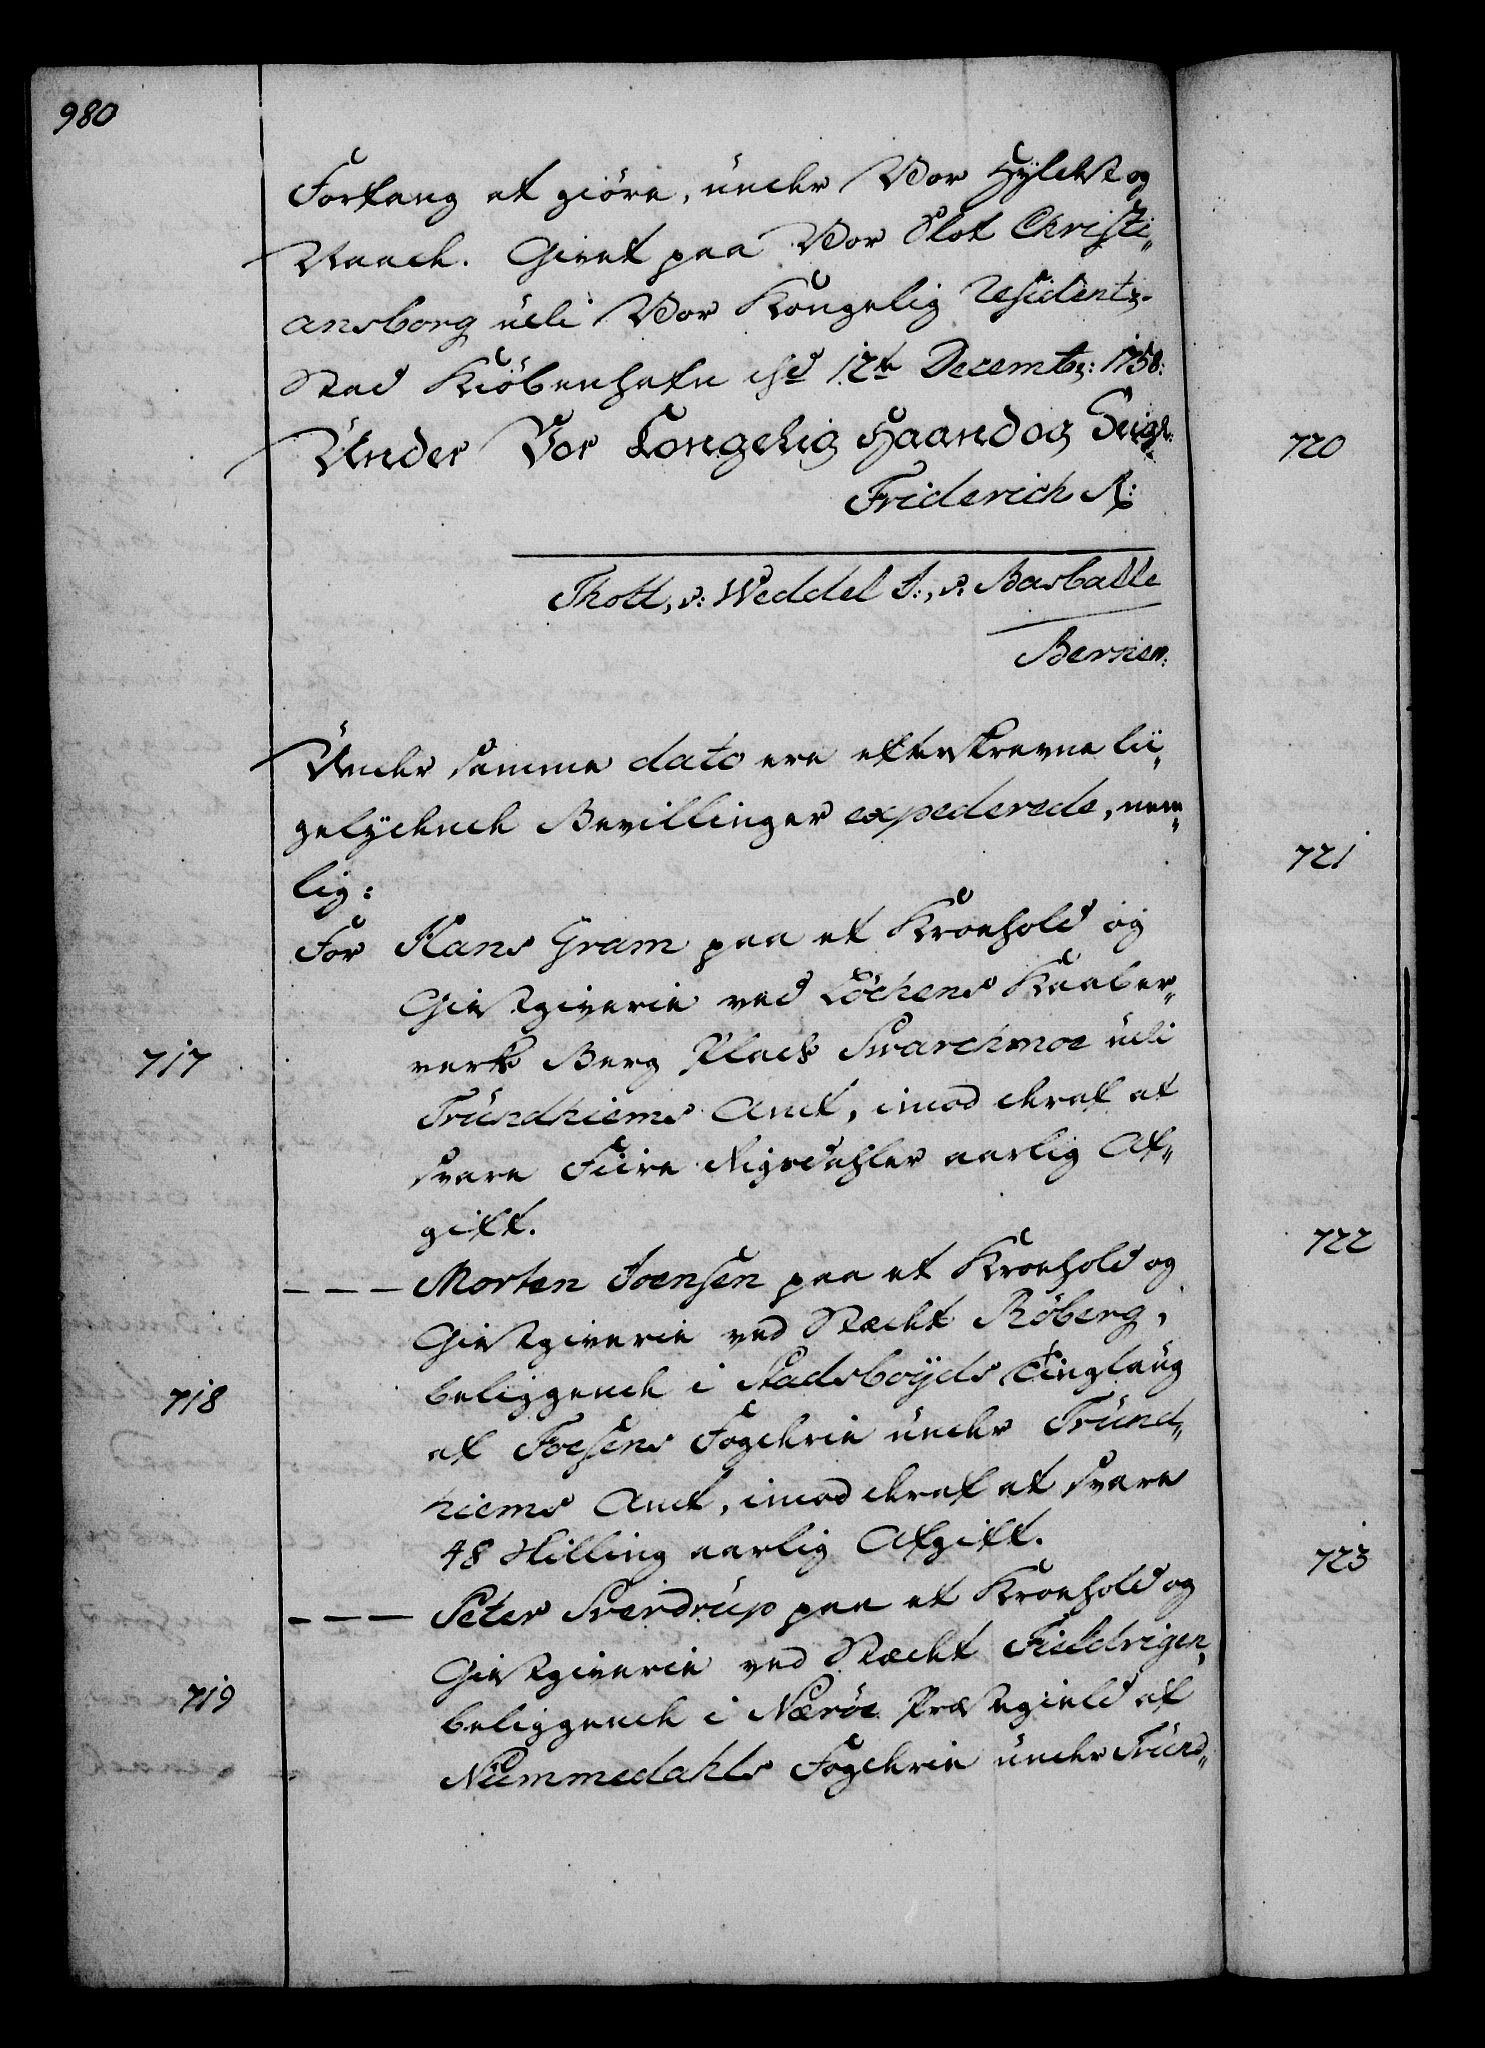 980
Forfang at giöre, under Vor Hyldest og
Naade. Givet paa Vor Slot Christi„
ansborg udi Vor Kongelig Residentz-
Stad Kiöbenhafn d. 12te Decembr: 1758:
Under Vor Kongelig Haand og Seigl:
Friderich R:
Thott, v: Weddel J:, v: Barballe
Bersien:
Under samme dato ere efterskrevne lii„
gelydende Bevillinger expederede, nem„
lig:
For Hans Gram paa et Kroehold og
Giestgiverie ved Löchens Kaaber„
717
verk Berg Plads Svarchmoe udi
Tründhiems Amt, imod deraf at
svare Fiire Rigsdahler aarlig Af„
gift.
– – – Morten Joensen paa et Kroehold og
Giestgiverie ved Stædet Röberg,
718
beliggende i Stadsboyds Tinglaug
af Foesens Fogderie under Tründ„
hiems Amt, imod deraf at svare
48 Skilling aarlig Afgift.
– – – Peter Sverdrup paa et Kroehold og
Giestgiverie ved Stædet Fieldvigen,
719
beliggende i Næröe Præstegield af
Nummedahls Fogderie under Tründ„
720
721
722
723